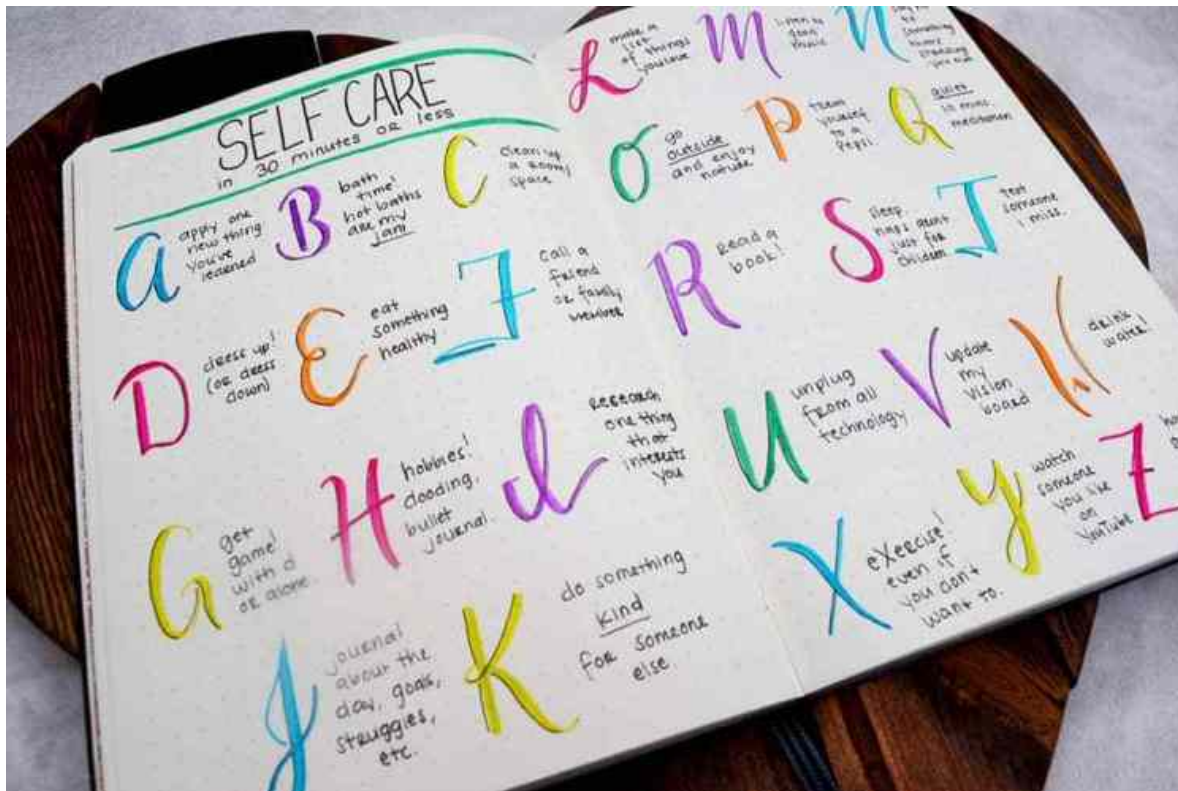 SELF CARE
in 30 minutes or less
A
apply one
new thing
you've
learned
B
bath
time!
hot baths
are my
jam!
C
clean up
a room/
space
D
dress up!
(or dress
down)
E
eat
something
healthy.
F
call a
friend
or family
member
G
get
game!
with d
or alone.
H
hobbies!
dooding,
bullet
journal.
I
research
one thing
that
interests
you
J
journal
about the
day, goals,
struggles,
etc.
K
do something
kind
for someone
else.
L
make a
list
of things
you love
M
listen to
good
music
N
to
something
O
go
outside
and enjoy
nature
P
treat
yourself
to a
Pepsi
Q
quiet
10 mins.
meditation
R
Read a
book!
S
sleep.
naps aren't
just for
children
T
text
someone
i miss.
U
unplug
from all
technology
V
update
my
vision
board
W
drink
water!
X
eXercise!
even if
you don't
want to.
Y
watch
someone
you like
on
YouTube
Z